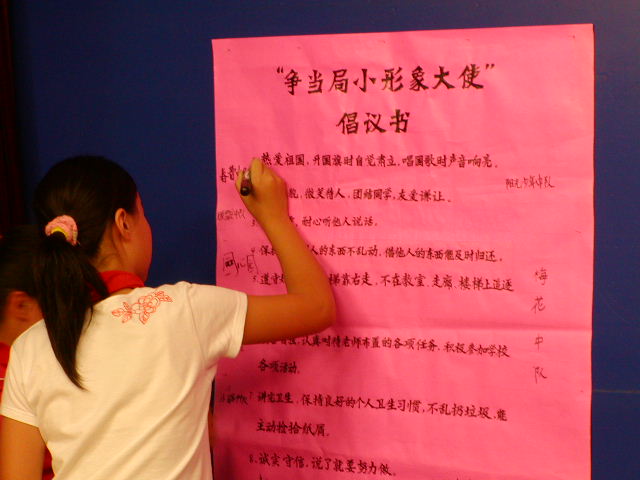 “争当局小形象大使”
倡议书
热爱祖国，升国旗时自觉肃立，唱国歌时声音响亮。
阳光少年中队
貌，微笑待人，团结同学，友爱谦让。
耐心听他人说话。
保 人的东西不乱动，借他人的东西能及时归还。
5. 遵守 梯靠右走，不在教室、走廊、楼梯上追逐
梅花中队
认真对待老师布置的各项任务，积极参加学校
各项活动。
7. 讲究卫生，保持良好的个人卫生习惯，不乱扔垃圾，能
主动捡拾纸屑。
8. 诚实守信，说了就要努力做。